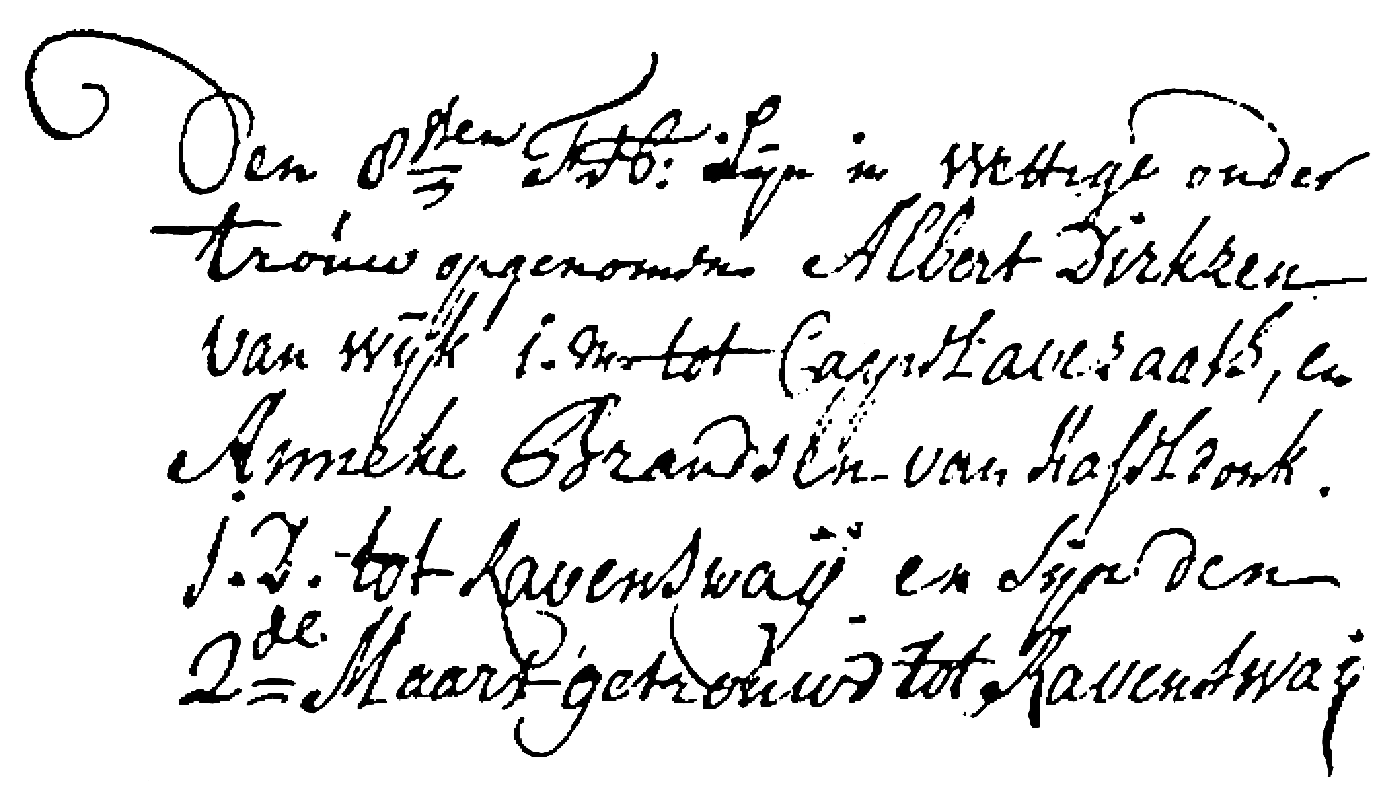 Den 8sten Feb: sijn in wettige onder
trouw opgenomen Albert Dirksen
van Wijk j. m. tot en
Anneke Brandsen van Hasseldonk.
J. D. tot Ravenswaij en sijn den
2de Maart getrouwd tot Ravenswaij